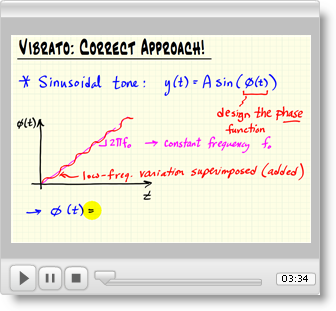 VIBRATO: CORRECT APPROACH!
* Sinusoidal tone: y(t) = A sin(φ(t))
design the phase
function
φ(t)
2πf₀ → constant frequency f₀
low-freq. variation superimposed (added)
t
→ φ(t) =
03:34